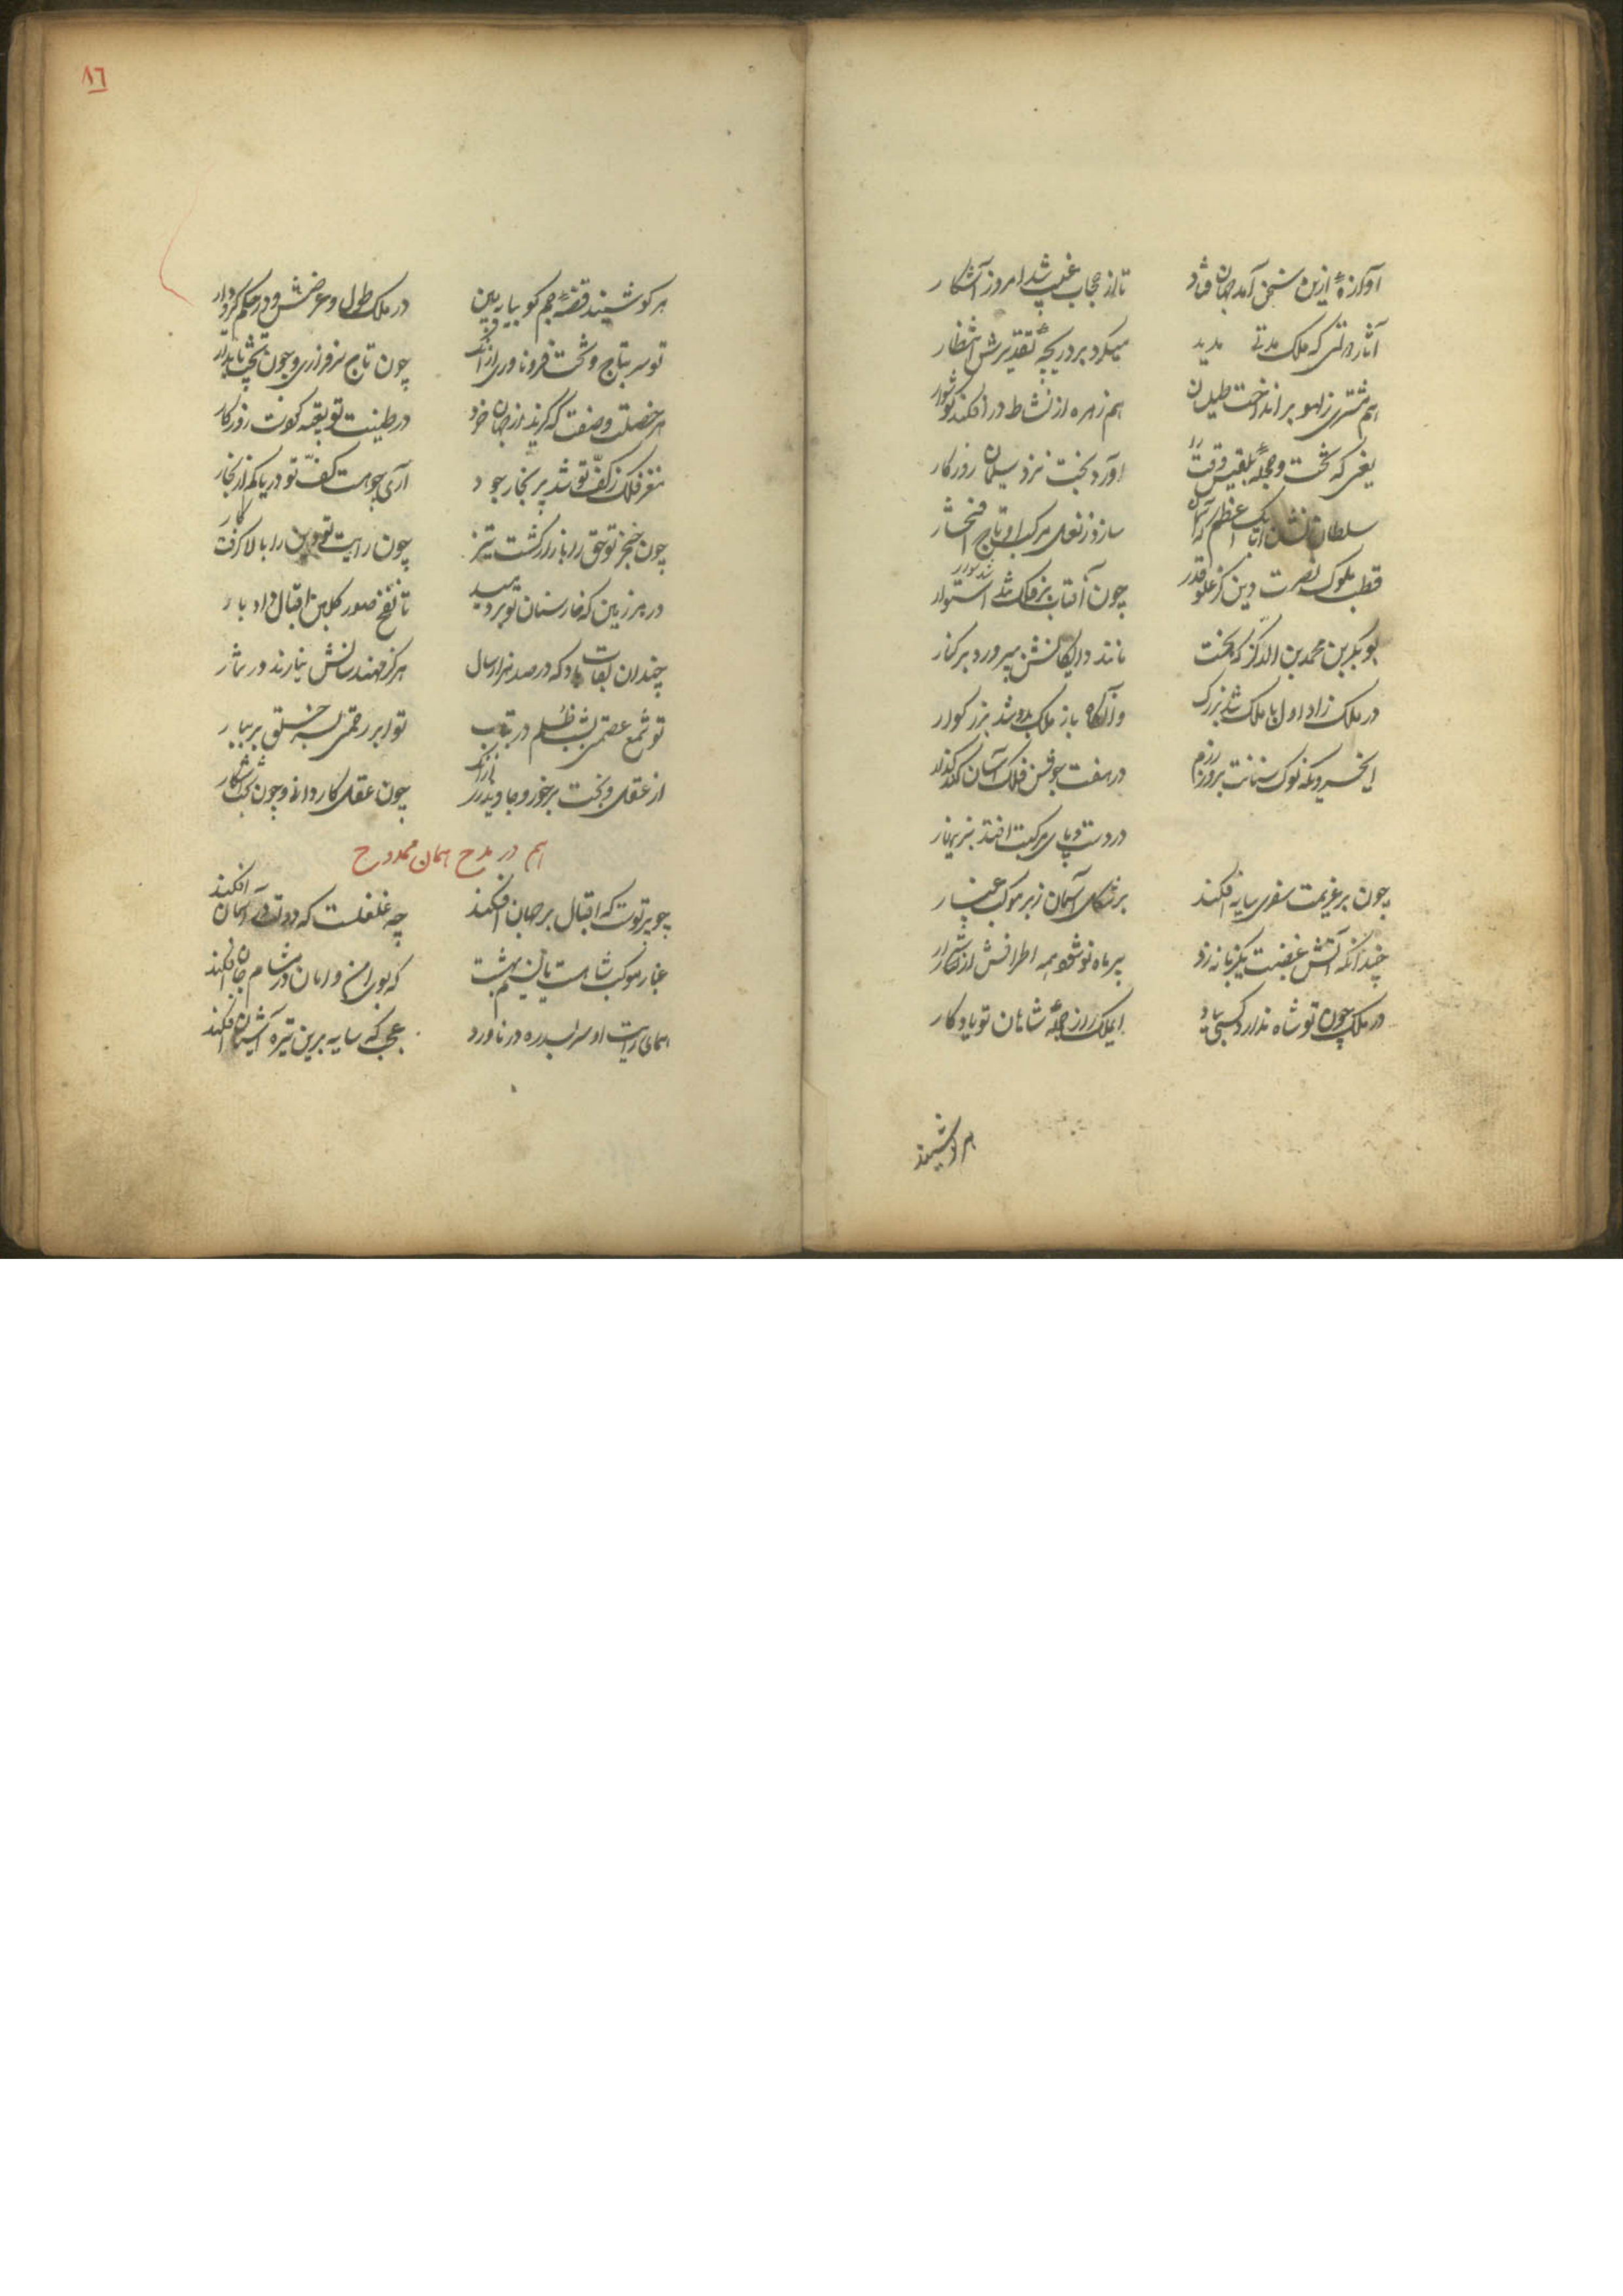 آوازهٔ ازین سخن آمد جهان فتاد
تا از حجاب غیب شد امروز آشکار
آثار دولتی که ملک مدتی مدید
میکرد بر دریچهٔ تقدیرش انتظار
هم مشتری ز لهو برانداخت طیلسان
هم زهره از نشاط در افکند گوشوار
یعنی که تخت و حجلهٔ بلقیس وقت را
آورد بخت نزد سلیمان روزکار
سلطان نشان اتابک اعظم که آسمان
سازد ز نعل مرکب او تاج افتخار
قطب ملوک نصرت دین کز علو قدر
چون آفتاب بر فلک ملک استوار
بوبکر بن محمد بن الدکز که بخت
مانند دایکانش بپرورد بر کنار
در ملک زاد اول با ملک شد بزرک
وآنکاه باز ملک بدو شد بزرکوار
ای خسروی که نوک سنانت بروز رزم
در هفت جوشن فلک آسان کند گذار
در دست و پای مرکبت افتد بزینهار
چون بر عزیمت سفری سایه افکند
بر شکل آسمان زبر موکبت غبار
چندانکه آتش غضبت یکزبانه زد
بر ماه نو شود همه اطرافش از شرار
در ملک چون تو شاه ندارد کسی بیاد
ای ملک را ز جملهٔ شاهان تو یادکار
هر کو شنید
۸٦
هر کو شنید قصهٔ جم کو بیا ببین
در ملک طول و عرضش و در حکم کیر و دار
تو سر بتاج و تخت فرو ناوری از آنک
چون تاج سرفرازی و چون تخت پایدار
هر خصلت و صفت که کزیند از جهان خرد
در طینت تو تعبیه کردست روزکار
مغز فلک ز کف تو شد پر بخار جود
آری چو هست کف تو دریا کم از بخار
چون خنجر تو حق را بازار کشت تیز
چون رایت تو دین را بالا کرفت کار
در هر زمین که خارستان تو بردمید
تا نفخ صور کلبن اقبال داد بار
چندان بقات باد که در صد هزار سال
هرکز مهندسانش نیارند در شمار
تو شمع عصمتی بشب ظلم در بتاب
تو ابر رحمتی بسر خلق بر ببار
از عقل و بخت برخور و جاوید زی از آنک
چون عقل کاردانی و چون بخت بختیار
هم در مدح همان ممدوح
چو پرتوست که اقبال بر جهان افکند
چه غلغلست که دولت در آسمان افکند
غبار موکب شاهست یا نسیم بهشت
که بوی امن و امان در مشام جان افکند
همای رایت او سر بسدره در ناورد
عجب که سایه برین تیره آشیان افکند